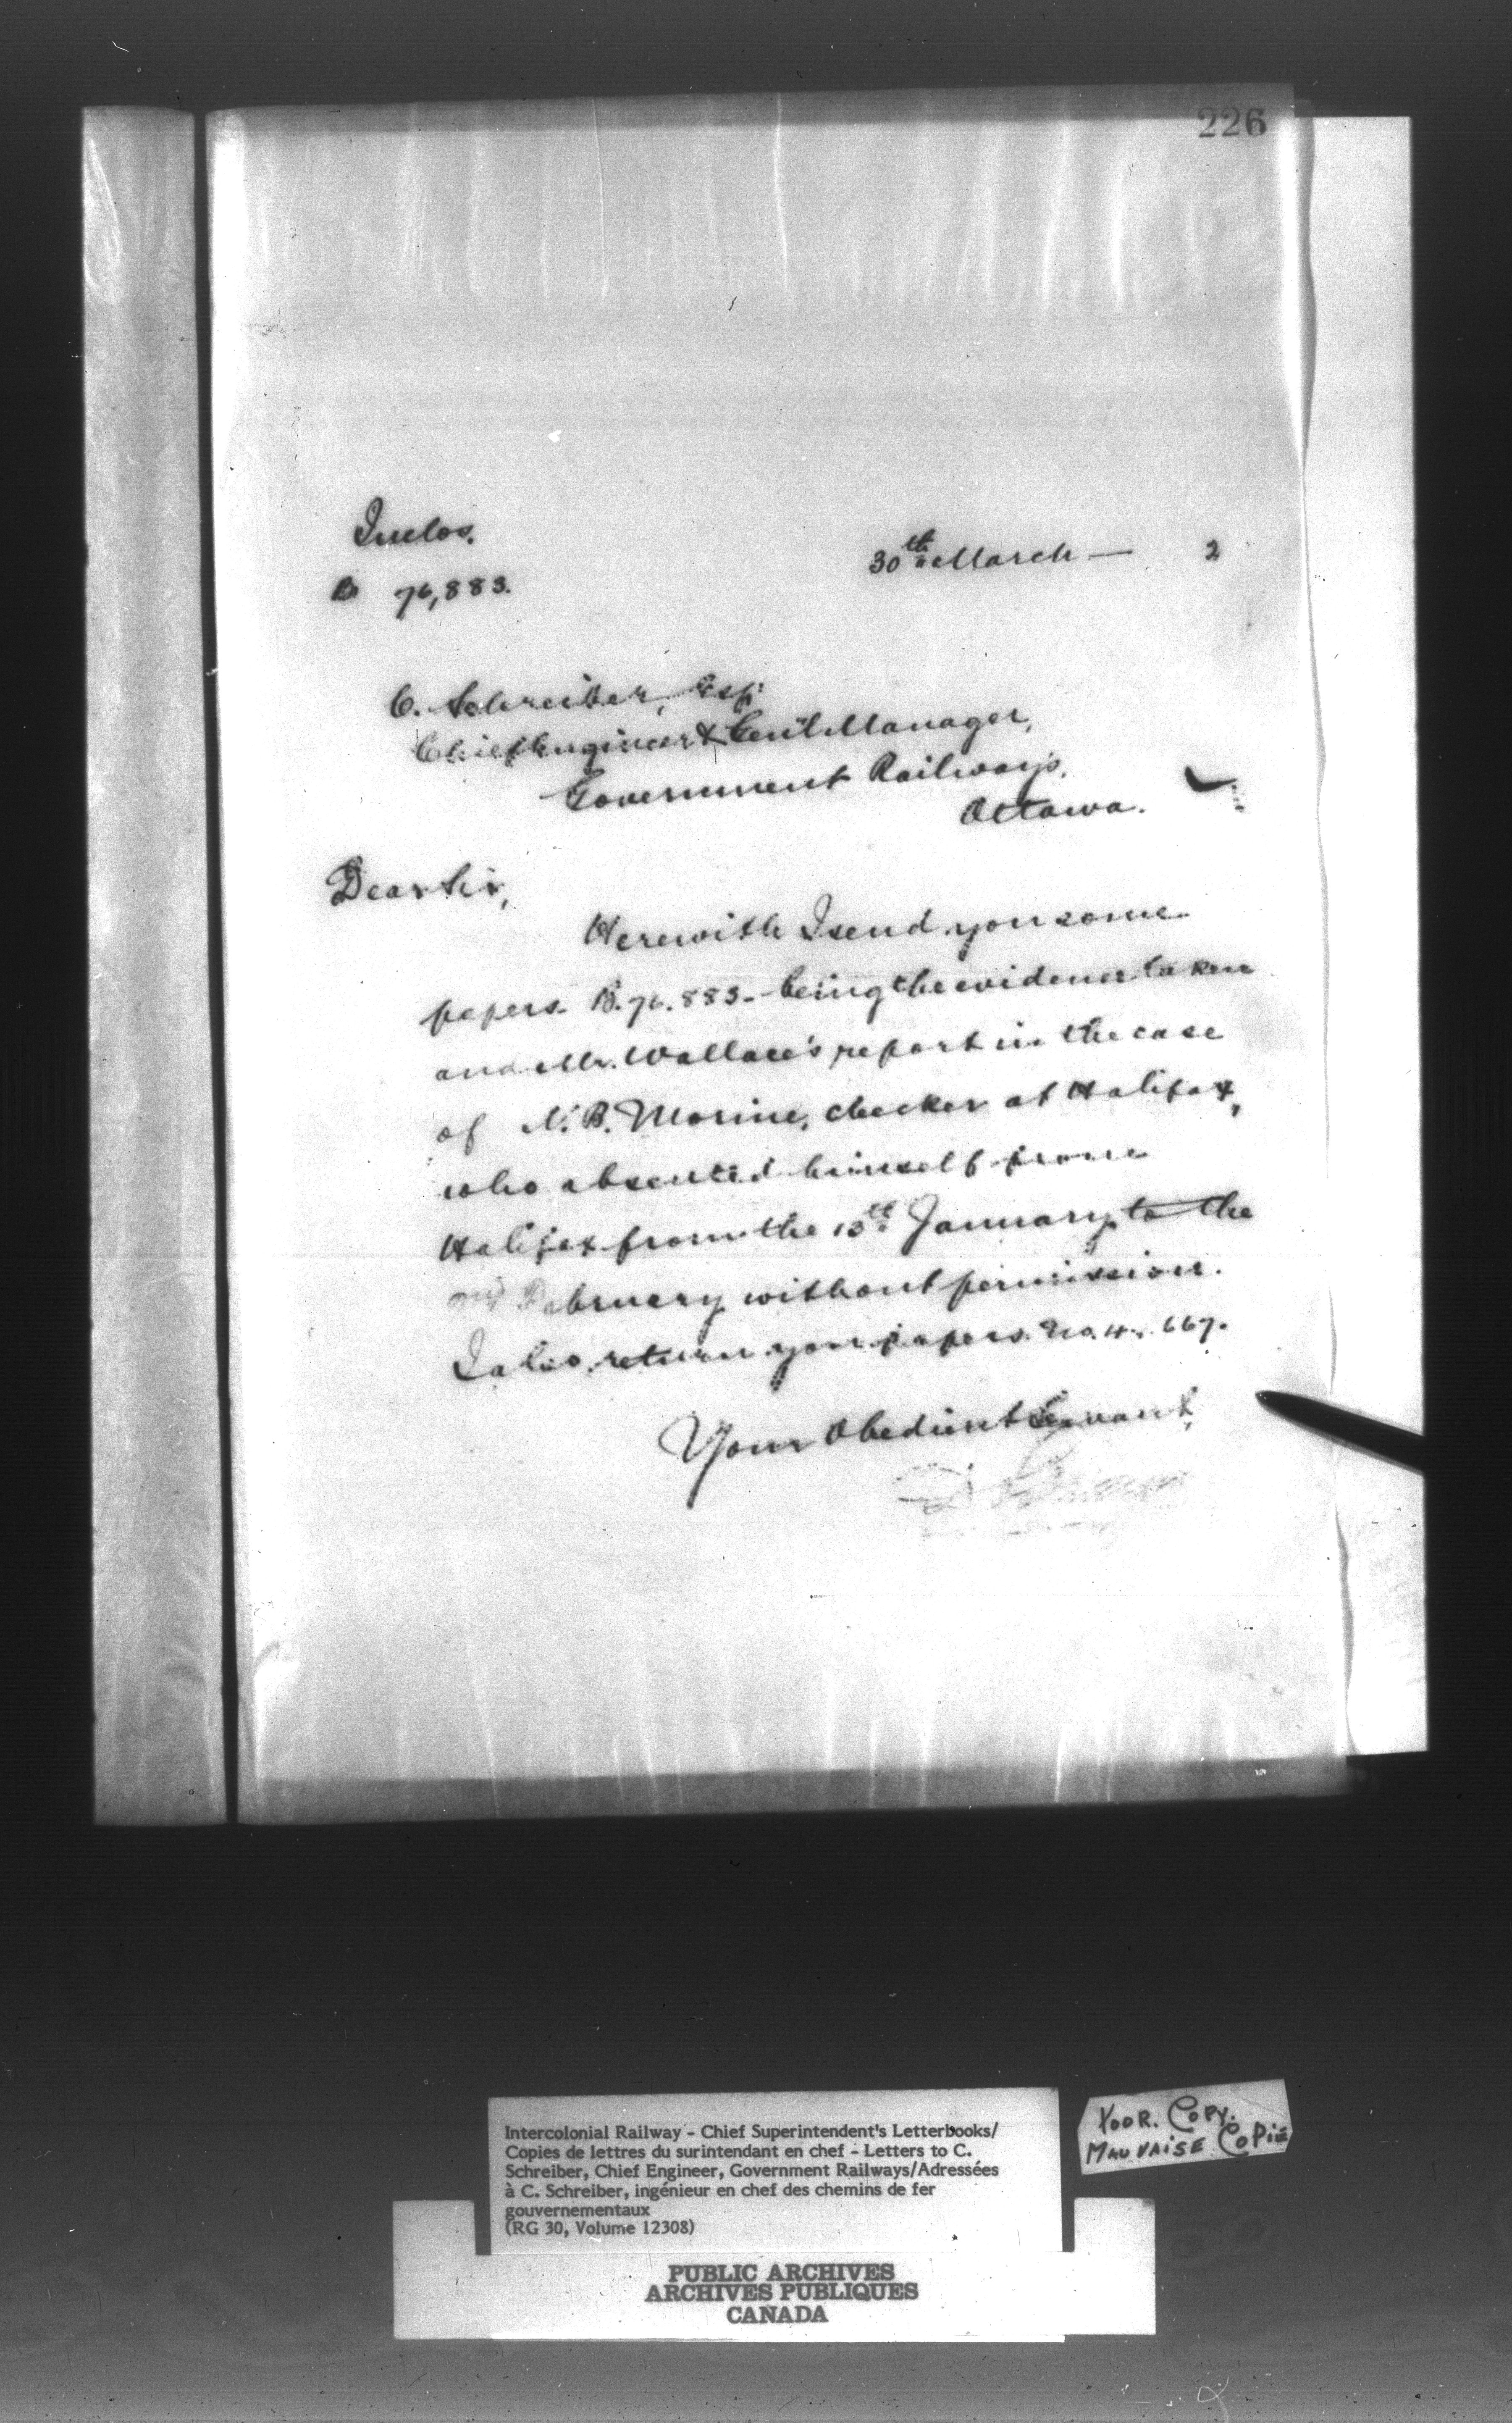 226
Inclos.
30th March — 2
B 76,883.
C. Schreiber, Esq:
Chief Engineer & Gen'l Manager,
Government Railways,
Ottawa.
Dear Sir,
Herewith I send you some
papers B.76.883 - being the evidence taken
and Mr. Wallace's report in the case
of N.B. Morine, checker at Halifax,
who absented himself from
Halifax from the 13th January to the
February without permission.
I also return your papers No. 667.
Your Obedient Servant,
Intercolonial Railway - Chief Superintendent's Letterbooks/
Copies de lettres du surintendant en chef - Letters to C.
Schreiber, Chief Engineer, Government Railways/Adressées
à C. Schreiber, ingénieur en chef des chemins de fer
gouvernementaux
(RG 30, Volume 12308)
POOR. COPY.
MAUVAISE COPIE
PUBLIC ARCHIVES
ARCHIVES PUBLIQUES
CANADA